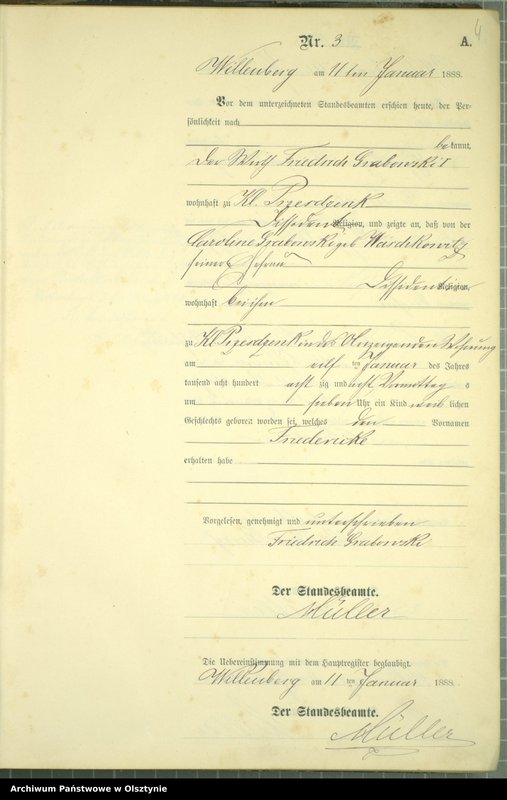 4
Nr. 3 A.
Willenberg am 11ten Januar 1888.
Vor dem unterzeichneten Standesbeamten erschien heute, der Per-
sönlichkeit nach
bekannt,
Der Wirth Friedrich Grabowski I
wohnhaft zu Kl. Przesdzienk
Dissident Religion, und zeigte an, daß von der
Caroline Grabowski geb
seiner Ehefrau
Religion,
wohnhaft bei ihm
zu Kl in des Anzeigenden Wohnung
am elf ten Januar des Jahres
tausend acht hundert acht zig und acht Vormittags
um sieben Uhr ein Kind weiblichen
Geschlechts geboren worden sei, welches den Vornamen
Friedericke
erhalten habe
Vorgelesen, genehmigt und unterschrieben
Friedrich Grabowski
Der Standesbeamte.
Müller
Die Uebereinstimmung mit dem Hauptregister beglaubigt.
Willenberg am 11 ten Januar 1888.
Der Standesbeamte.
Müller
Archiwum Państwowe w Olsztynie